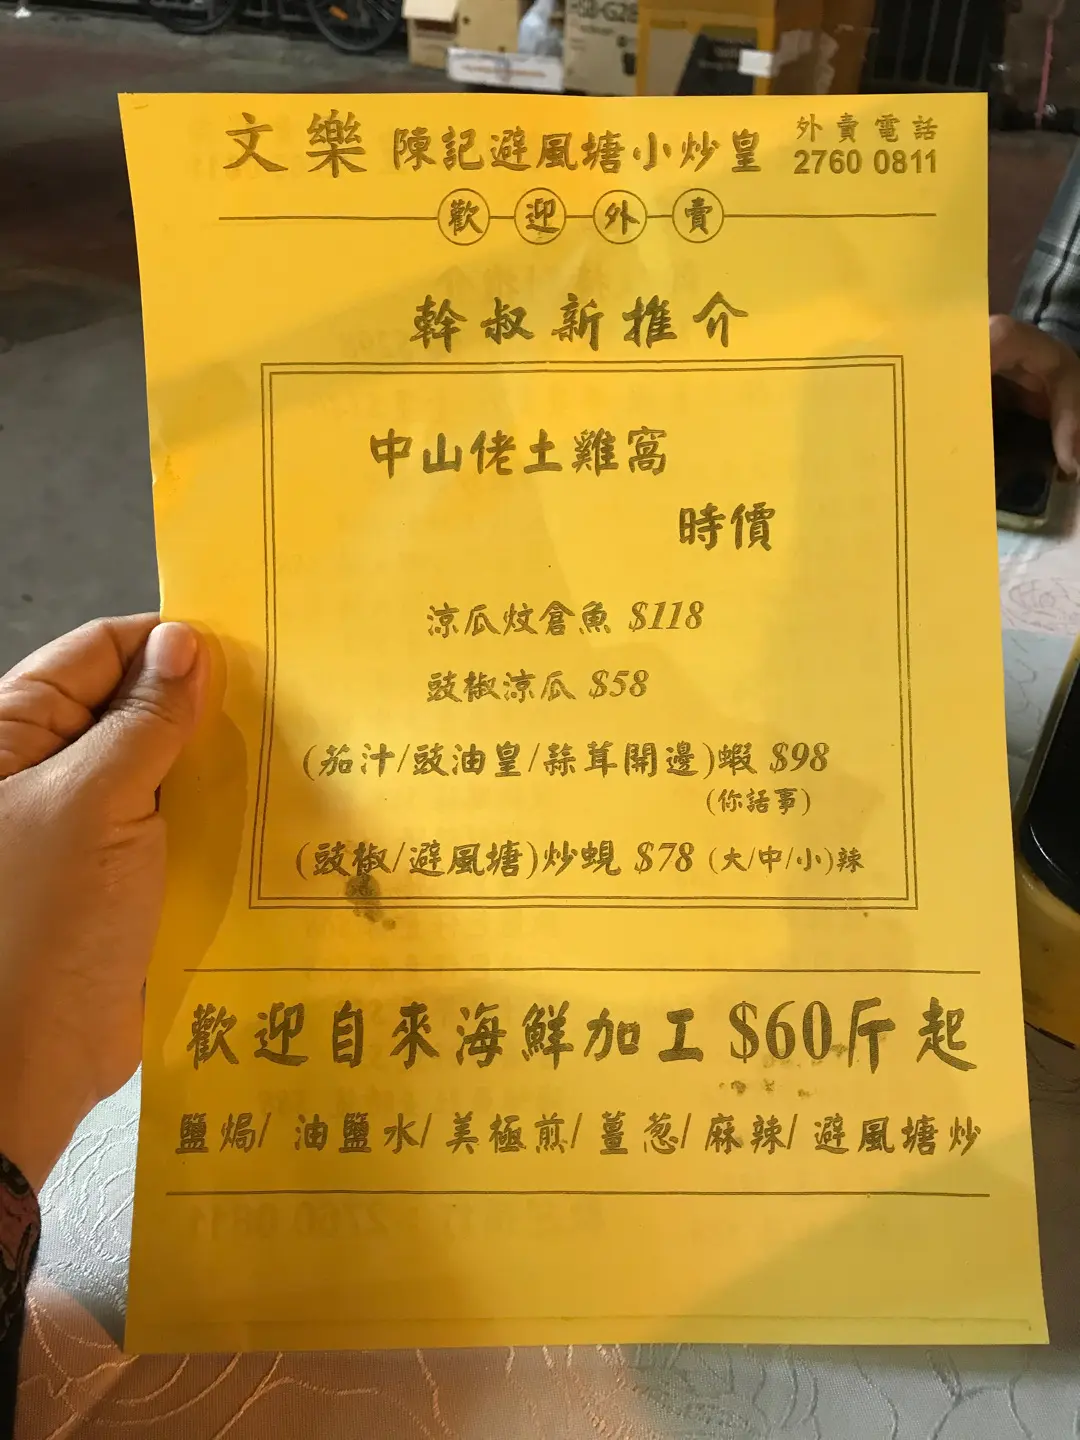 文樂 陳記避風塘小炒皇
外賣電話
2760 0811
歡迎外賣
幹叔新推介
中山佬土雞窩
時價
涼瓜炆倉魚 $118
豉椒涼瓜 $58
(茄汁/豉油皇/蒜茸開邊)蝦 $98
(你話事)
(豉椒/避風塘)炒蜆 $78 (大/中/小)辣
歡迎自來海鮮加工$60斤起
鹽焗/ 油鹽水/ 美極煎/ 薑葱/ 麻辣/ 避風塘炒